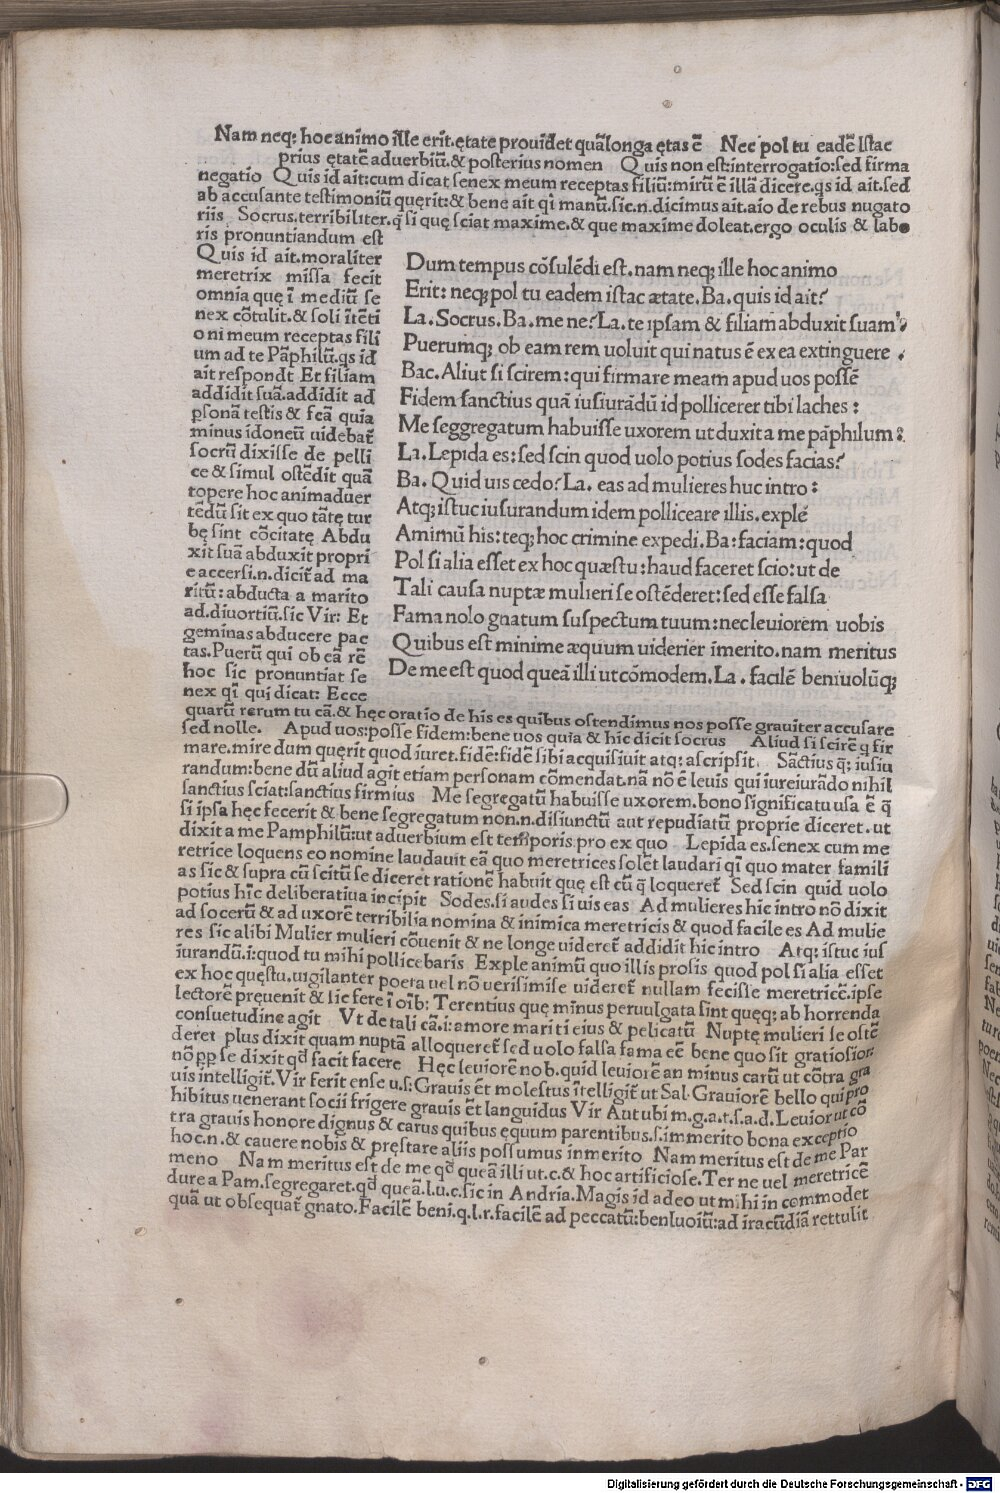 Nam neq; hoc animo ille erit. ętate prouidet quā longa ętas ē Nec pol tu eadē Istac
prius ętatē aduerbiū. & posterius nomen Quis non est: interrogatio: sed firma
negatio Quis id ait: cum dicat senex meum receptas filiū: mirū ē illā dicere. qs id ait. sed
ab accusante testimoniū quęrit: & bene ait qi manū. sic. n. dicimus ait. aio de rebus nugato
riis Socrus. terribiliter. q̄ si quę sciat maxime. & que maxime doleat. ergo oculis & labo
ris pronuntiandum est
Quis id ait. moraliter
meretrix missa fecit
omnia quę ī mediū se
nex cōtulit. & soli ītēti
oni meum receptas fili
um ad te Pāphilū. qs id
ait respondt Et filiam
addidit suā. addidit ad
psonā testis & fcā quia
minus idoneū uidebat̄
socrū dixisse de pelli
ce & simul ostēdit quā
topere hoc animaduer
tēdū sit ex quo tātę tur
bę sint cōcitatę Abdu
xit suā abduxit propri
e accersi. n. dicit̄ ad ma
ritū: abducta a marito
ad. diuortiū. sic Vir: Et
geminas abducere pac
tas. Puerū qui ob eā rē
hoc sic pronuntiat se
nex qi qui dicat: Ecce
Dum tempus cōsulēdi est. nam neq; ille hoc animo
Erit: neq; pol tu eadem istac ætate. Ba. quis id ait?
La. Socrus. Ba. me ne? La. te ipsam & filiam abduxit suam
Puerumq; ob eam rem uoluit qui natus ē ex ea extinguere .
Bac. Aliut si scirem: qui firmare meam apud uos possē
Fidem sanctius quā iusiurādū id pollicerer tibi laches :
Me seggregatum habuisse uxorem ut duxit a me pāphilum :
La. Lepida es: sed scin quod uolo potius sodes facias?
Ba. Quid uis cedo? La. eas ad mulieres huc intro :
Atq; istuc iusiurandum idem polliceare illis. explē
Amimū his: teq; hoc crimine expedi. Ba: faciam: quod
Pol si alia esset ex hoc quæstu: haud faceret scio: ut de
Tali causa nuptæ mulieri se ostēderet: sed esse falsa
Fama nolo gnatum suspectum tuum: nec leuiorem uobis
Quibus est minime æquum uiderier īmerito. nam meritus
De me est quod queā illi ut cōmodem. La . facilē beniuolūq;
quarū rerum tu cā. & hęc oratio de his es quibus ostendimus nos posse grauiter accusare
sed nolle. Apud uos: posse fidem: bene uos quia & hic dicit socrus Aliud si scirē q fir
mare. mire dum quęrit quod iuret. fidē: fidē sibi acquisiuit atq; ascripsit. Sāctius q̄; iusiu
randum: bene dū aliud agit etiam personam cōmendat. nā nō ē leuis qui iureiurādo nihil
sanctius sciat: sanctius firmius Me segregatū habuisse uxorem. bono significatu usa ē q̄
si ipsa hęc fecerit & bene segregatum non. n. disiunctū aut repudiatū proprie diceret. ut
dixit a me Pamphilū: ut aduerbium est temporis pro ex quo Lepida es. senex cum me
retrice loquens eo nomine laudauit eā quo meretrices solēt laudari qi quo mater famili
as sic & supra cū scitū se diceret rationē habuit quę est cū q̄ loqueret̄ Sed scin quid uolo
potius hic deliberatiua incipit Sodes. si audes si uis eas Ad mulieres hic intro nō dixit
ad socerū & ad uxorē terribilia nomina & inimica meretricis & quod facile es Ad mulie
res sic alibi Mulier mulieri cōuenit & ne longe uideret̄ addidit hic intro Atq; istuc ius
iurandū. i: quod tu mihi pollicebaris Exple animū quo illis prosis quod pol si alia esset
ex hoc quęstu. uigilanter poeta uel nō uerisimise uideret̄ nullam fecisse meretricē. ipse
lectorē pręuenit & sic fere ī oīb: Terentius quę minus peruulgata sint quęq; ab horrenda
consuetudine agit Vt de tali cā. i: amore mariti eius & pelicatū Nuptę mulieri se ostē
deret plus dixit quam nuptā alloqueret̄ sed uolo falsa fama eē bene quo sit gratiosior:
nō pp se dixit qd facit facere Hęc leuiorē nob. quid leuiorē an minus carū ut cōtra gra
uis intelligit̄. Vir ferit ense u. s: Grauis ēt molestus ītelligit̄ ut Sal. Grauiorē bello qui pro
hibitus uenerant socii frigere grauis ēt languidus Vir Aut ubi m. g. a. t. s. a. d. Leuior ut cō
tra grauis honore dignus & carus quibus ęquum parentibus. s. immerito bona exceptio
hoc. n. & cauere nobis & pręstare aliis possumus inmerito Nam meritus est de me Par
meno Nam meritus est de me qd queā illi ut. c. & hoc artificiose. Ter ne uel meretricē
dure a Pam. segregaret. qd queā. l. u. c. sic in Andria. Magis id adeo ut mihi in commodet
quā ut obsequat̄ gnato. Facilē beni. q. l. r. facilē ad peccatū: benluoiū: ad iracūdiā rettulit
Digitalisierung gefördert durch die Deutsche Forschungsgemeinschaft - DFG